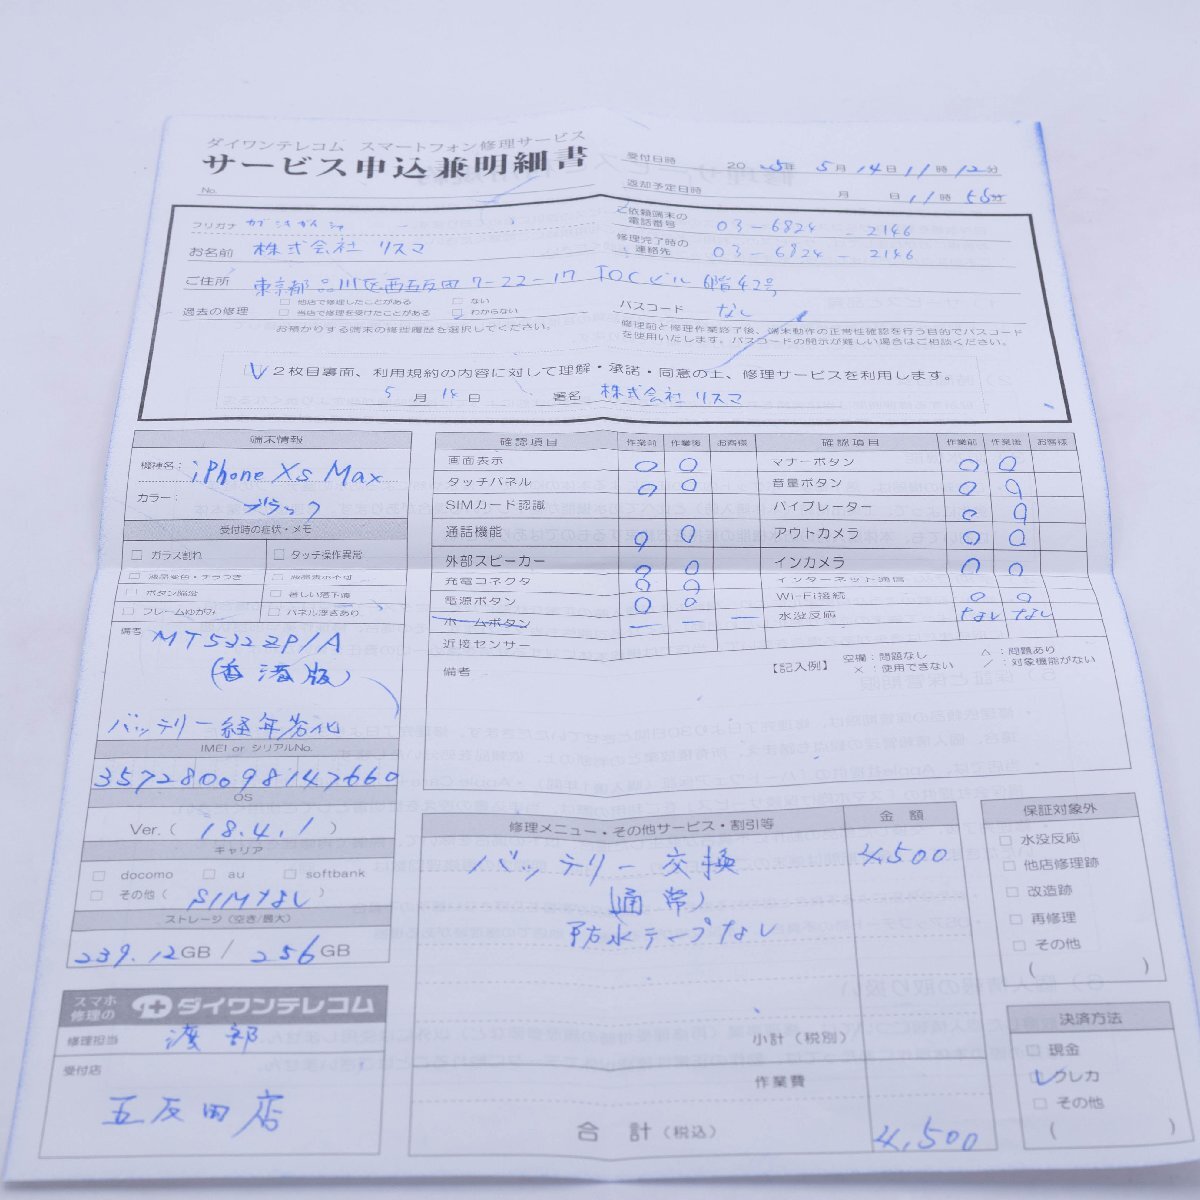 ダイワンテレコム スマートフォン修理サービス
サービス申込兼明細書
No.
受付日時 2025年 5月14日11時12分
返却予定日時 月 日11時55分
フリガナ
お名前 株式会社 リスマ
依頼端末の電話番号 03-6824-2146
修理完了時の連絡先 03-6824-2146
ご住所 東京都品川区西五反田7-22-17 TOCビル 6階42号
過去の修理 □ 他店で修理したことがある □ ない
□ 当店で修理を受けたことがある □ わからない
お預かりする端末の修理履歴を選択してください。
パスコード なし
修理前と修理作業終了後、端末動作の正常性確認を行う目的でパスコード
を使用いたします。パスコードの開示が難しい場合はご相談ください。
2枚目裏面、利用規約の内容に対して理解・承諾・同意の上、修理サービスを利用します。
5月14日 署名 株式会社リスマ
端末情報
機種名: iPhone Xs Max
カラー: ブラック
受付時の症状・メモ
□ ガラス割れ □ タッチ操作異常
□ 液晶変色・チラつき □ 液晶表示不可
□ ボタン陥没 □ 著しい落下痕
□ フレームゆがみ □ パネル浮きあり
備考 MT532ZP/A
(香港版)
バッテリー経年劣化
IMEI or シリアルNo.
357280098147660
OS
Ver.( 18.4.1 )
キャリア
□ docomo □ au □ softbank
□ その他( SIMなし )
ストレージ(空き/最大)
239.12GB / 256GB
スマホ修理の ダイワンテレコム
修理担当 渡部
受付店
五反田店
確認項目 作業前 作業後 お客様 確認項目 作業前 作業後 お客様
画面表示 ○ ○ マナーボタン ○ ○
タッチパネル ○ ○ 音量ボタン ○ ○
SIMカード認識 バイブレーター ○ ○
通話機能 ○ ○ アウトカメラ ○ ○
外部スピーカー ○ ○ インカメラ ○ ○
充電コネクタ ○ ○ インターネット通信
電源ボタン ○ ○ Wi-Fi接続 ○ ○
ホームボタン ー ー ー 水没反応 なし なし
近接センサー
備考
【記入例】 空欄:問題なし △:問題あり
×:使用できない /:対象機能がない
修理メニュー・その他サービス・割引等 金額
バッテリー交換 4,500
(通常)
防水テープなし
小計(税別)
作業費
合 計(税込) 4,500
保証対象外
□ 水没反応
□ 他店修理跡
□ 改造跡
□ 再修理
□ その他
( )
決済方法
□ 現金
☑ クレカ
□ その他
( )